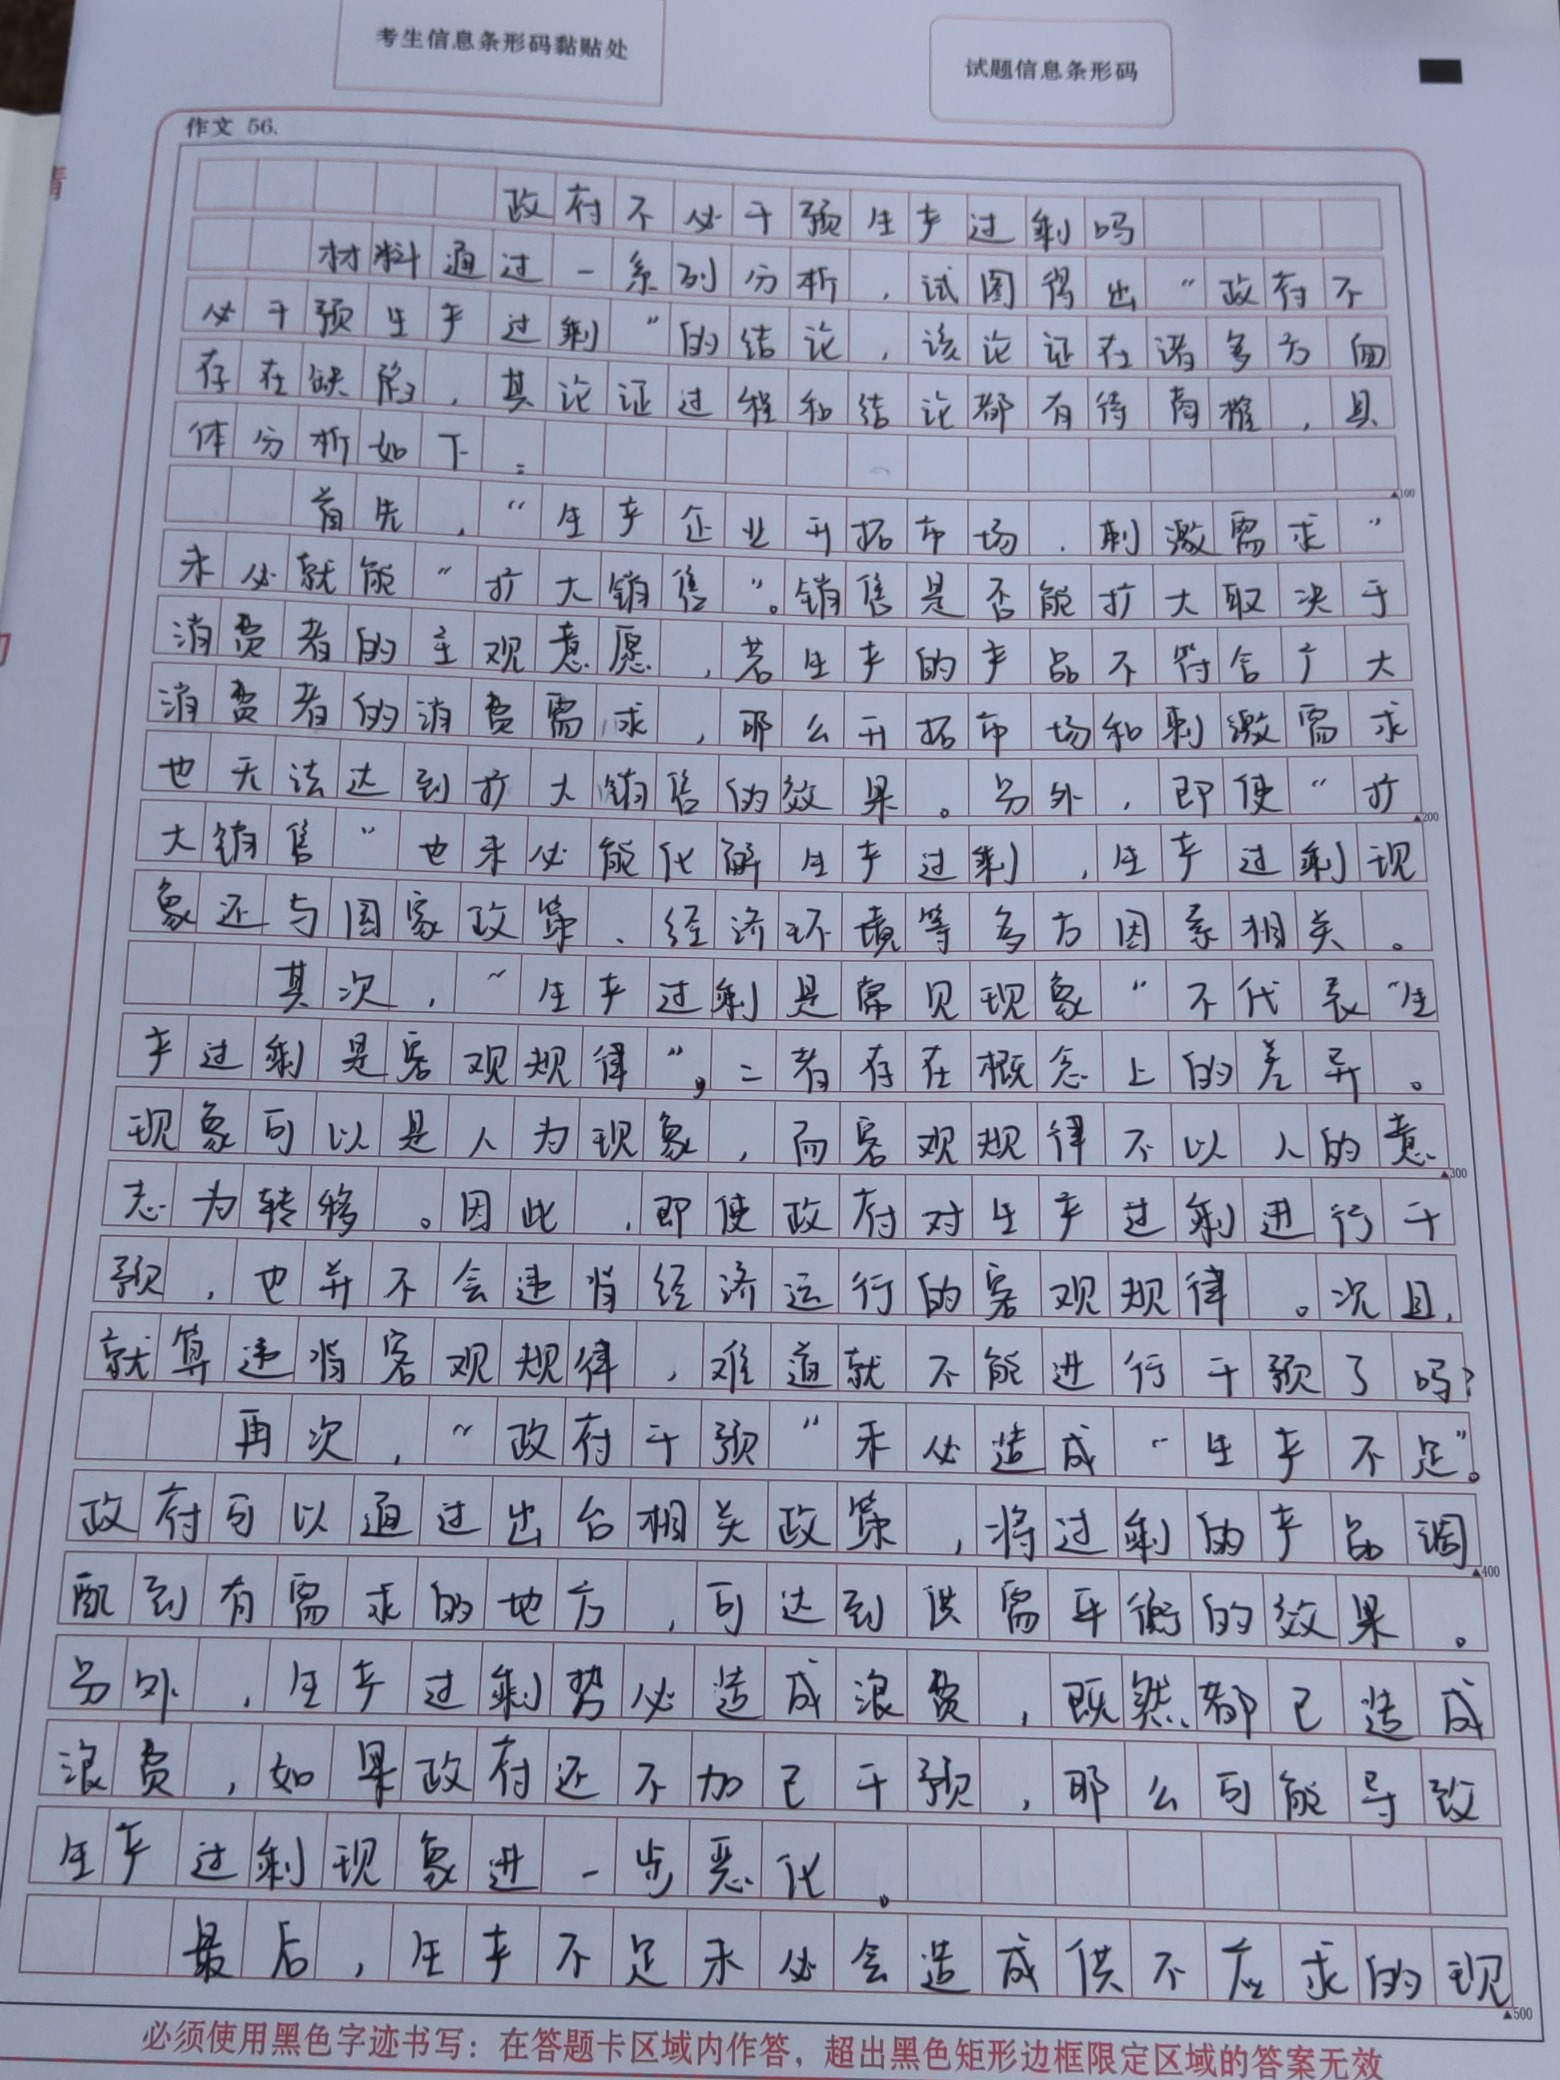 考生信息条形码黏贴处
试题信息条形码
作文 56.
政府不必干预生产过剩吗
材料通过一系列分析，试图得出“政府不
必干预生产过剩”的结论，该论证在诸多方面
存在缺陷，其论证过程和结论都有待商榷，具
体分析如下：
▲100
首先，“生产企业开拓市场、刺激需求”
未必就能“扩大销售”。销售是否能扩大取决于
消费者的主观意愿，若生产的产品不符合广大
消费者的消费需求，那么开拓市场和刺激需求
也无法达到扩大销售的效果。另外，即使“扩
▲200
大销售”也未必能化解生产过剩，生产过剩现
象还与国家政策、经济环境等多方因素相关。
其次，“生产过剩是常见现象”不代表“生
产过剩是客观规律”，二者存在概念上的差异。
现象可以是人为现象，而客观规律不以人的意
▲300
志为转移。因此，即使政府对生产过剩进行干
预，也并不会违背经济运行的客观规律。况且，
就算违背客观规律，难道就不能进行干预了吗？
再次，“政府干预”未必造成“生产不足”。
政府可以通过出台相关政策，将过剩的产品调
▲400
配到有需求的地方，可达到供需平衡的效果。
另外，生产过剩势必造成浪费，既然都已造成
浪费，如果政府还不加已干预，那么可能导致
生产过剩现象进一步恶化。
最后，生产不足未必会造成供不应求的现
▲500
必须使用黑色字迹书写：在答题卡区域内作答，超出黑色矩形边框限定区域的答案无效